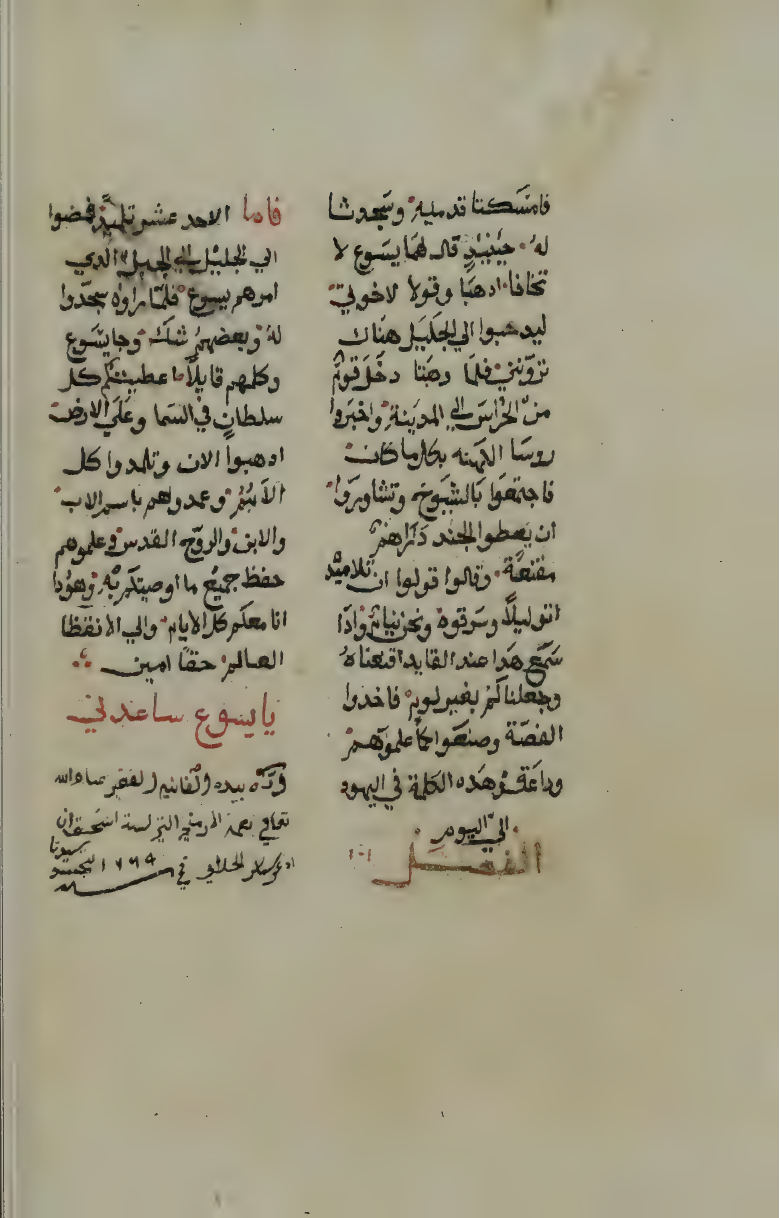 فامسكتا قدميه وسجدتا
له حينيذٍ قال لهما يسوع لا
تخافا ادهبا وقولا لاخوتي
ليدهبوا الي الجليل هناك
ترونني فلما دهبتا دخل قوم
من الحراس الي المدينة واخبروا
روسا الكهنه بكل ما كان
فاجتمعوا بالشيوخ وتشاوروا
ان يعطوا الجند دراهم
مقنعة وقالوا قولوا ان تلاميد
اتو ليلاً وسرقوه ونحن نيام وادا
سمع هدا عند القايد اقنعناه
وجعلناكم بغير لوم فاخدوا
الفضة وصنعوا كما علموهم
وداعة هده الكلمة في اليهود
الي اليوم
الفصل ١٠١
فاما الاحد عشر تلميد فمضوا
الي الجليل الي الجبل الدي
امرهم يسوع فلما راوه سجدوا
له وبعضهم شك وجا يسوع
وكلمهم قايلاً اعطيت كل
سلطان في السما وعلي الارض
ادهبوا الان وتلمدوا كل
الامم وعمدوهم باسم الاب
والابن والروح القدس وعلموهم
حفظ جميع ما اوصيتكم به وهودا
انا معكم كل الايام والي الانقضا
العالم حقا امين
يا يسوع ساعدني
بيده الفانيه الفقر
تعالي نعمة
في ١٧٦٩